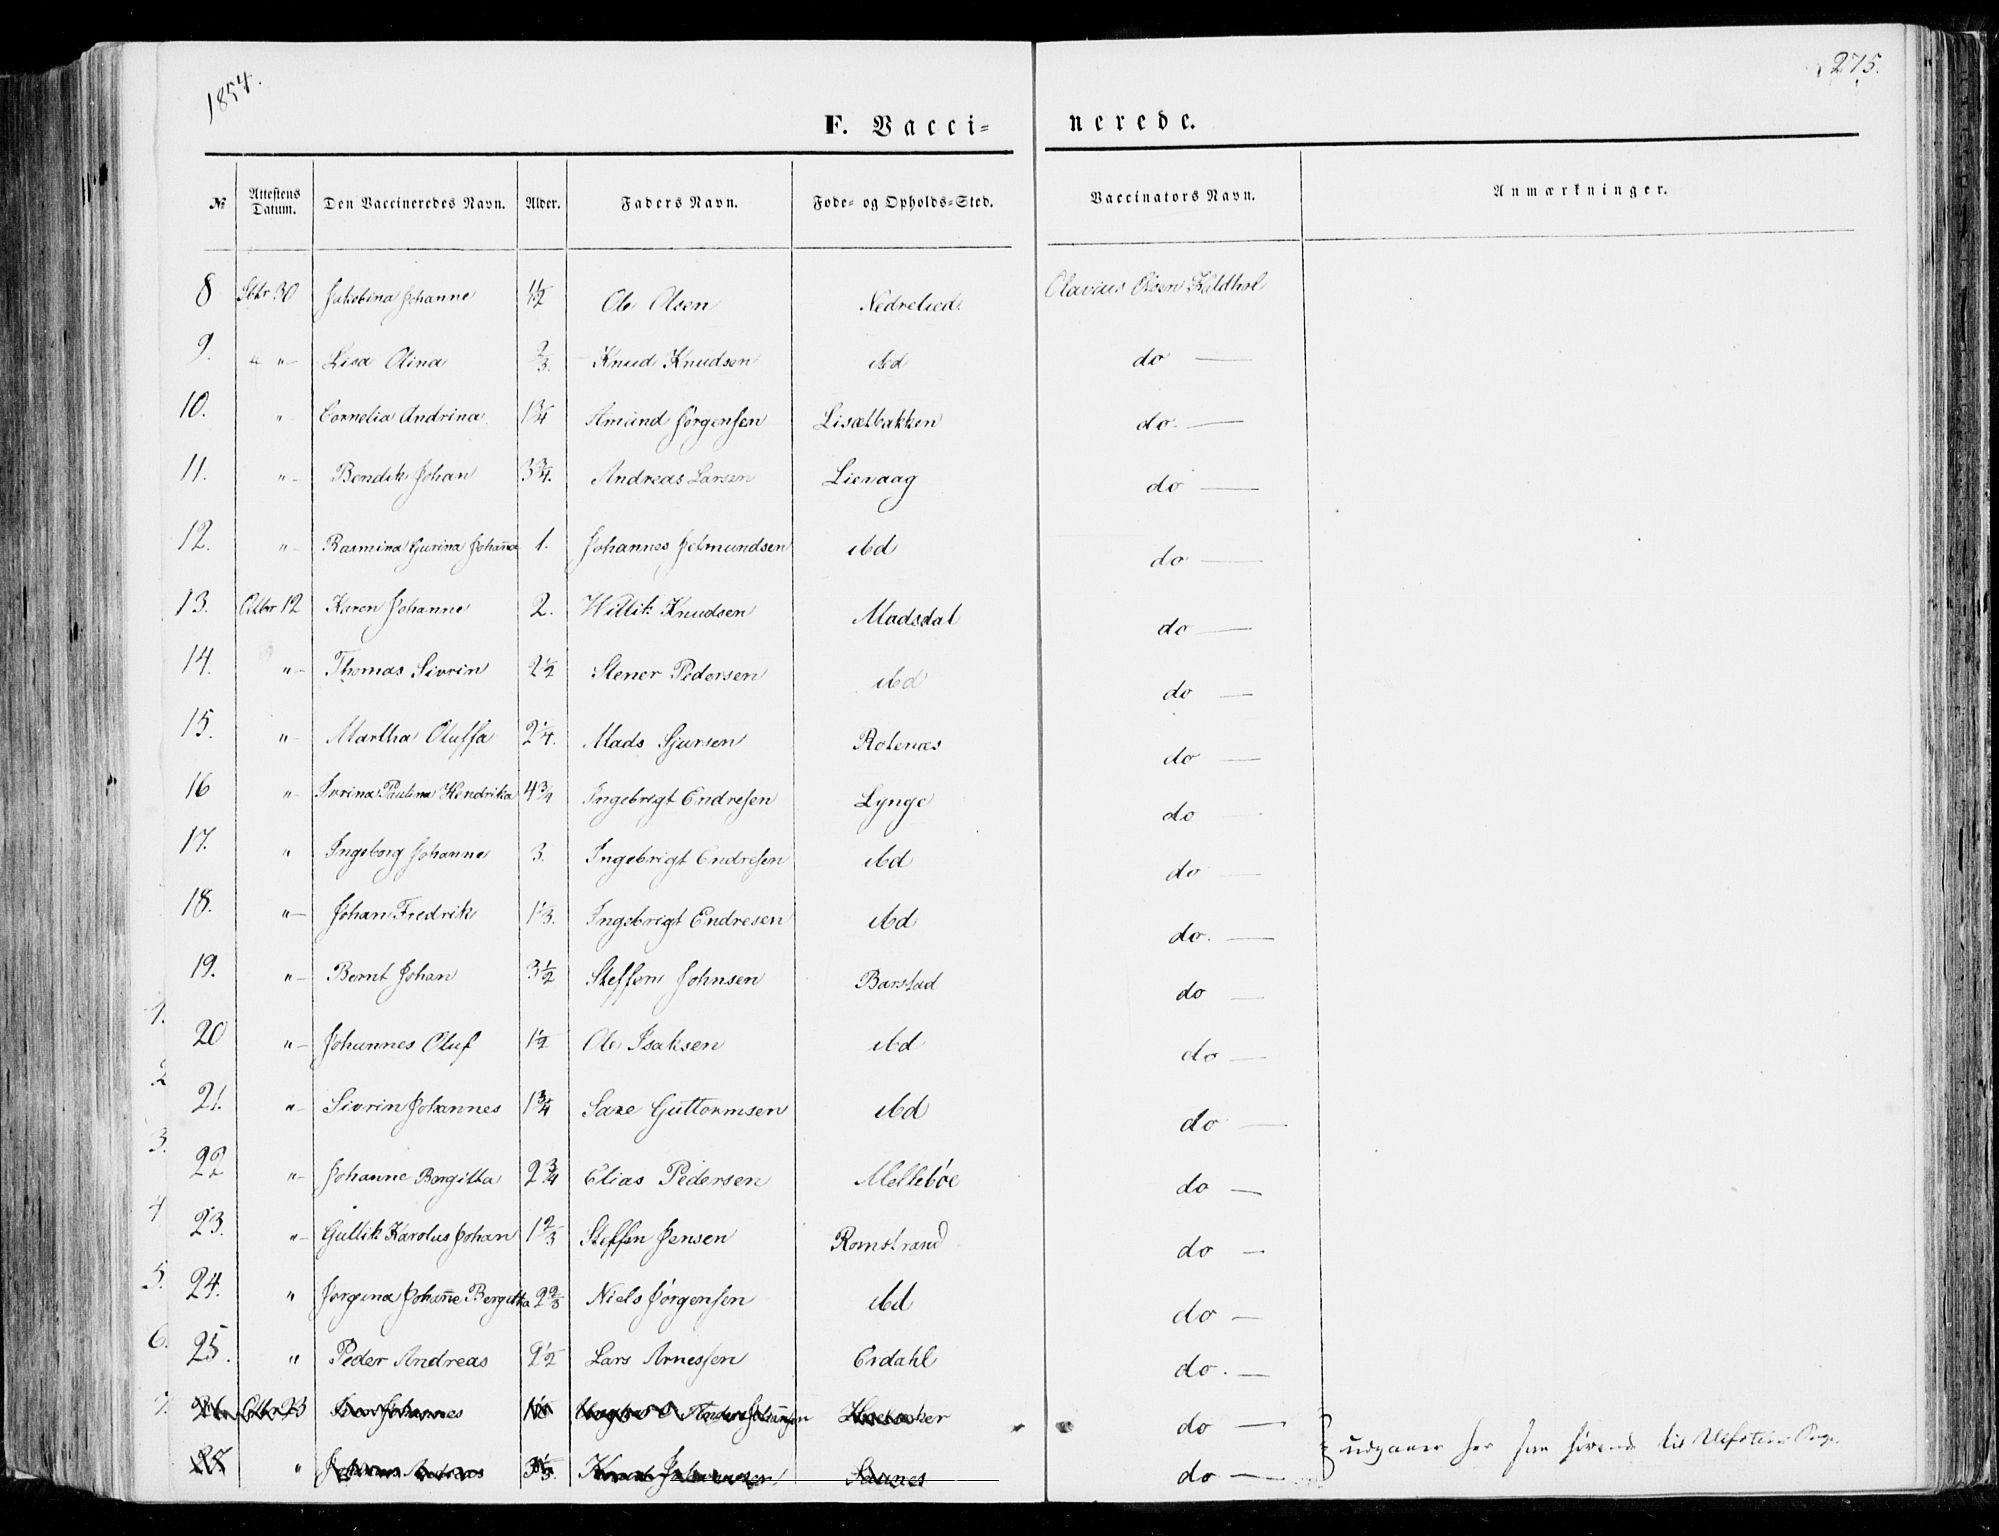 1854.
275.
F. Vaccinerede.
№ Attestens Datum. Den Vaccineredes Navn. Alder. Faders Navn. Føde- og Opholds-Sted. Vaccinators Navn. Anmærkninger.
8 Sbtr 30 Jakobina Johanne 1½ Ole Olsen Nedrelied. Olavius Olsen
9. " " Lisa Olina ⅔. Knud Knudsen ibd do —
10. " Cornelia Andrina 1¾ Amund Jørgensen Lisætbakken do. —
11. " Bendik Johan 3¾. Andreas Larsen Lievaag do —
12. " Rasmina Gurina Johañe 1. Johannes Jetmundsen ibd do —
13. Octbr 12 Karen Johanne 2. Willik Knudsen Madsdal do —
14. " Thomas Sivrin 2½ Stener Pedersen ibd do —
15. " Martha Oluffa 2¼. Mads Sjursen Rotenæs do —
16 " Sivrina Paulina Hendrika 4¾ Ingebrigt Endresen Lynge do —
17. " Ingeborg Johanne 3. Ingebrigt Endresen ibd do —
18. " Johan Fredrik 1⅓. Ingebrigt Endresen ibd do. —
19. " Bernt Johan 3½ Steffen Johnsen Barstad do —
1.
20 " Johannes Oluf 1½ Ole Isaksen ibd do —
2
21. " Sivrin Johannes 1¾ Saxe Guttormsen ibd do —
3.
22 " Johanne Bergitta 2¾ Elias Pedersen Mellebøe do —
4
23. " Gullik Karolus Johan 1⅔ Steffen Jensen Romstrand do —
5.
24. " Jorgina Johañe Bergitta 2⅔ Niels Jørgensen ibd do —
6.
25. " Peder Andreas 2½ Lars Arnessen Erdahl do. —
7.
26. Octbr 23 Johannes do —
27 " 3⅓. Knud Sannes do —
udgaaer her som hørende til